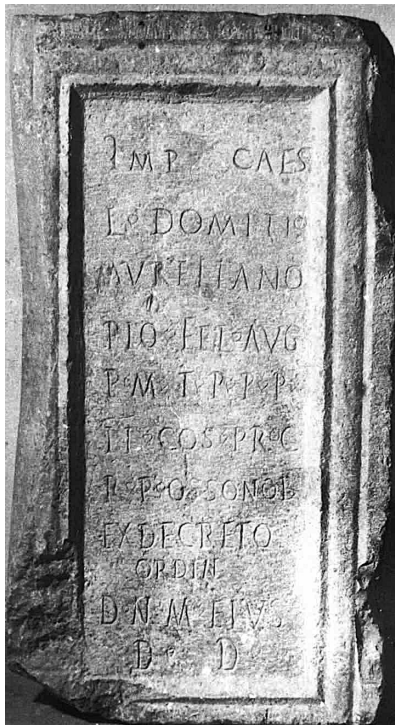 IMP CAES
L DOMITIO
AVRELIANO
PIO FEL AVG
P M T P P P
II COS PROC
R P OSSONOB
EX DECRETO
ORDIN
D N M EIVS
D D